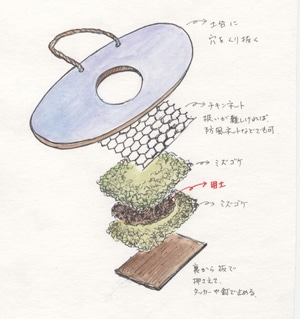 土台に
穴をくり抜く
チキンネット
扱いが難しければ
防風ネットなどでも可
ミズゴケ
用土
ミズゴケ
裏から板で
押さえて、
タッカーや釘で止める。